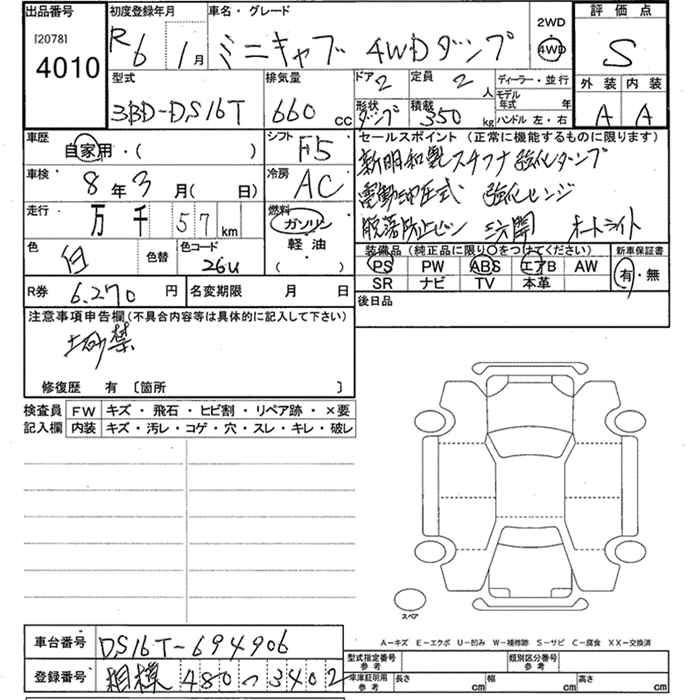 出品番号 初度登録年月 車名・グレード 2WD 評価点
[2078] 4010 R6 1月 ミニキャブ 4WDダンプ 4WD S
型式 排気量 ドア 2 定員 2人 ディーラー・並行 外装 内装
3BD-DS16T 660cc 形状 ダンプ 積載 350kg モデル年式 年 A A
ハンドル 左・右
車歴 自家用・( ) シフト F5 セールスポイント (正常に機能するものに限ります)
車検 8年3月(日) 冷房 AC 新明和製 スチフナ 強化ダンプ
走行 万千57km 燃料 ガソリン 電動油圧式 強化ヒンジ
軽油 脱落防止ピン 三方開 オートライト
色 白 色替 色コード 26U ( ) 装備品 (純正品に限り○をつけてください) 新車保証書
PS PW ABS エアB AW 有・無
SR ナビ TV 本革
R券 6.270円 名変期限 月 日 後日品
注意事項申告欄 (不具合内容等は具体的に記入して下さい)
土砂禁
修復歴 有 〔箇所 〕
検査員 FW キズ・飛石・ヒビ割・リペア跡・×要
記入欄 内装 キズ・汚レ・コゲ・穴・スレ・キレ・破レ
スペア
A-キズ E-エクボ U-凹み W-補修跡 S-サビ C-腐食 XX-交換済
車台番号 DS16T-694906
登録番号 相模 480 つ 3402
型式指定番号 参考 類別区分番号 参考
車庫証明用 参考 長さ cm 幅 cm 高さ cm